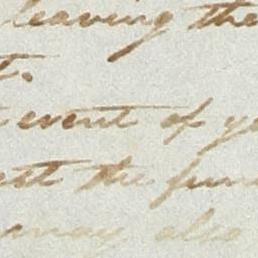 leaving the
t.
event of y
st the fun
may also